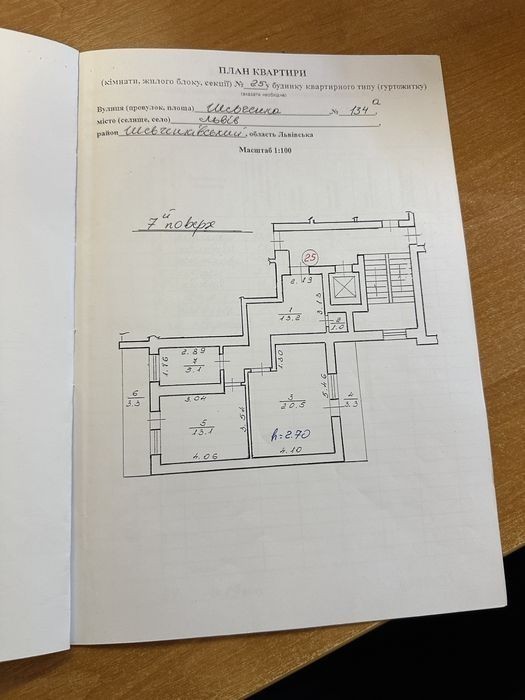 ПЛАН КВАРТИРИ
(кімнати, жилого блоку, секції) № 25 у будинку квартирного типу (гуртожитку)
(вказати необхідне)
Вулиця (провулок, площа) Шевченка № 134 а,
місто (селище, село) Львів,
район Шевченківський, область Львівська
Масштаб 1:100
7й поверх
25
2.13
3.13
1
13.2
2
1.0
2.89
1.76
7
5.1
1.30
6
3.3
3.04
3.54
5
13.1
4.06
3
20.5
5.46
h=2.70
4.10
4
3.3